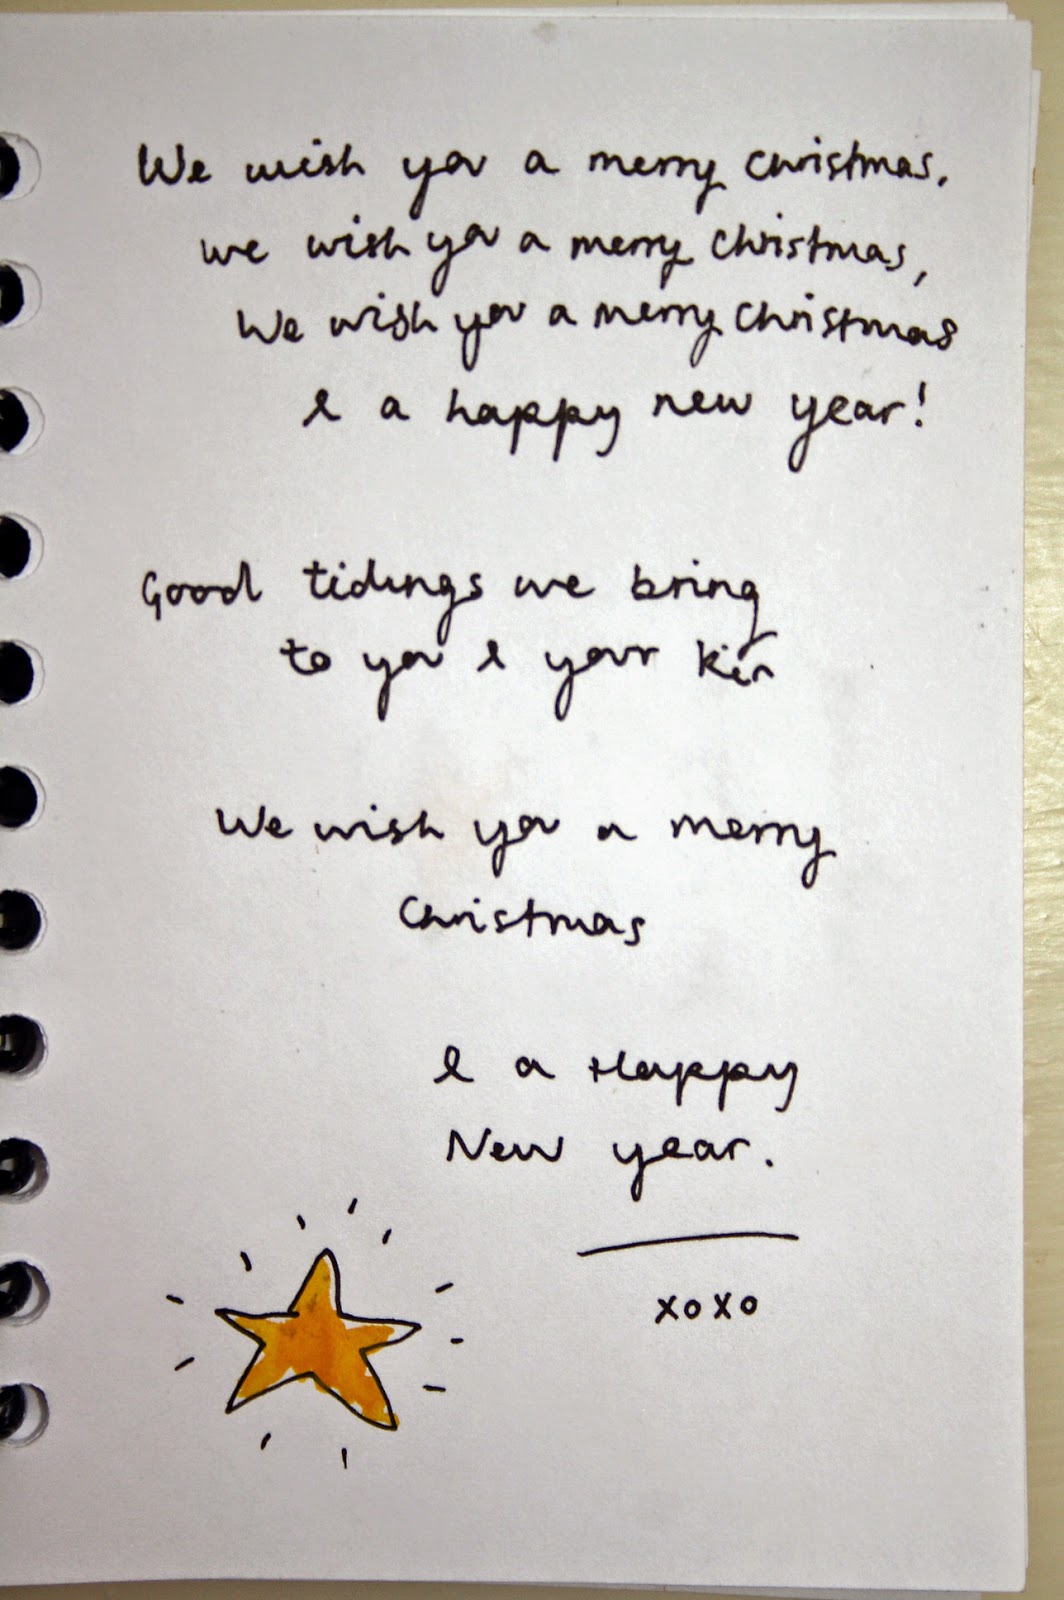 We wish you a merry Christmas,
we wish you a merry Christmas,
We wish you a merry Christmas
& a happy new year!
Good tidings we bring
to you & your kin
We wish you a merry
Christmas
& a Happy
New year.
xoxo